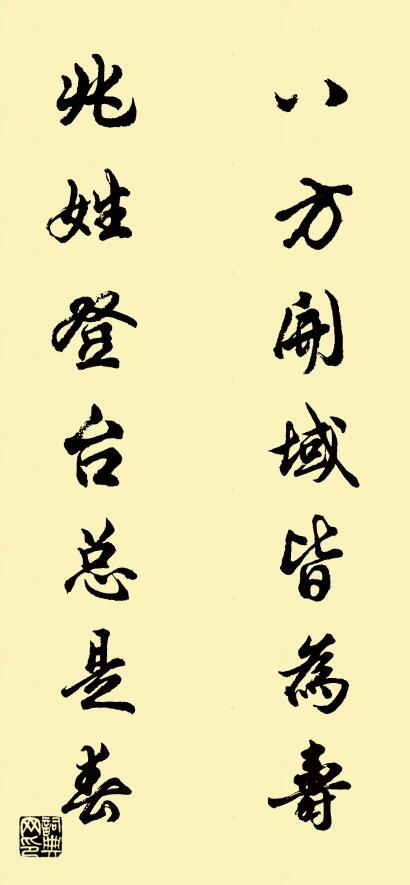 八方開域皆為壽
兆姓登台总是春
詞典网印